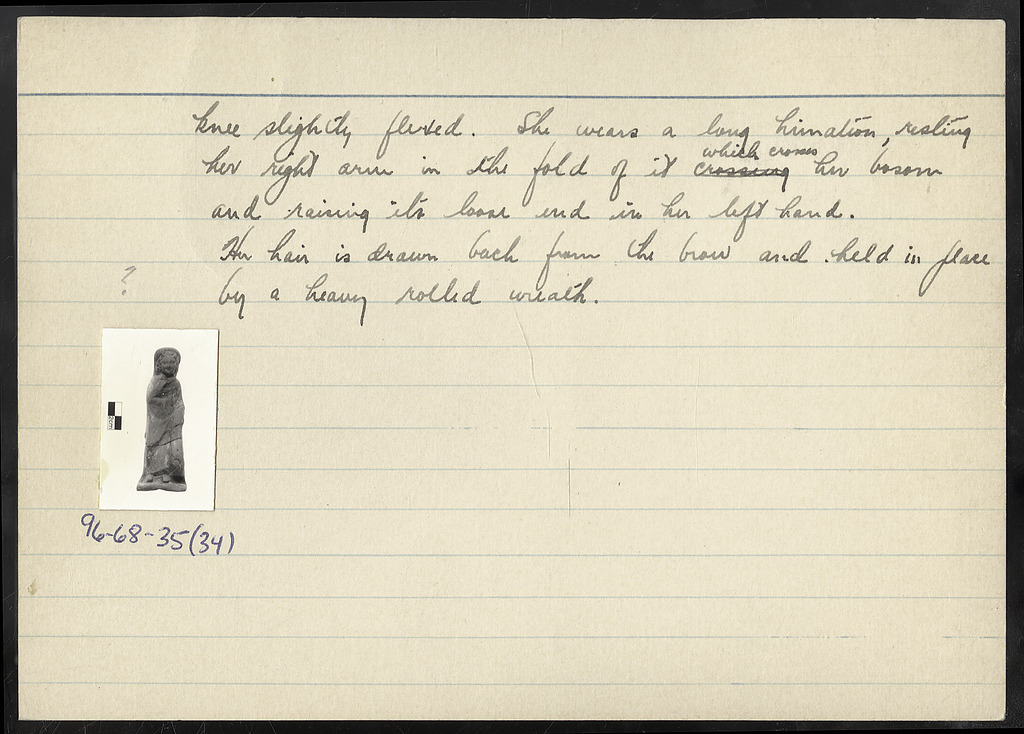 knee slightly flexed. She wears a long himation, resting
her right arm in the fold of it crossing which crosses her bosom
and raising its loose end in her left hand.
Her hair is drawn back from the brow and held in place
? by a heavy rolled wreath.
2cm
96-68-35(34)